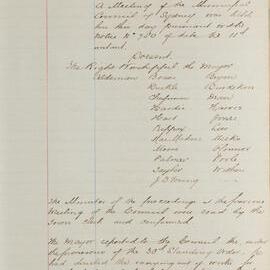 A Meeting of the Municipal
Council of Sydney was held
here this day Pursuant to
Notice No 780 of date the 11th
instant.
Present
The Right Worshipful the Mayor
Aldermen Bowen Byrne
Buckle Burdekin
Chapman Dean
Hardie Harris
Hart Jones
Kippax Lees
Meeks
Moore O'Connor
Palmer Poole
Taylor
J.D. Young
The Minutes of the proceedings at the previous
Meeting of the Council were read by the
Town Clerk and confirmed
The Mayor reported to the Council that under
the provisions of the 33rd Standing Order, he
had directed the carrying out of works for